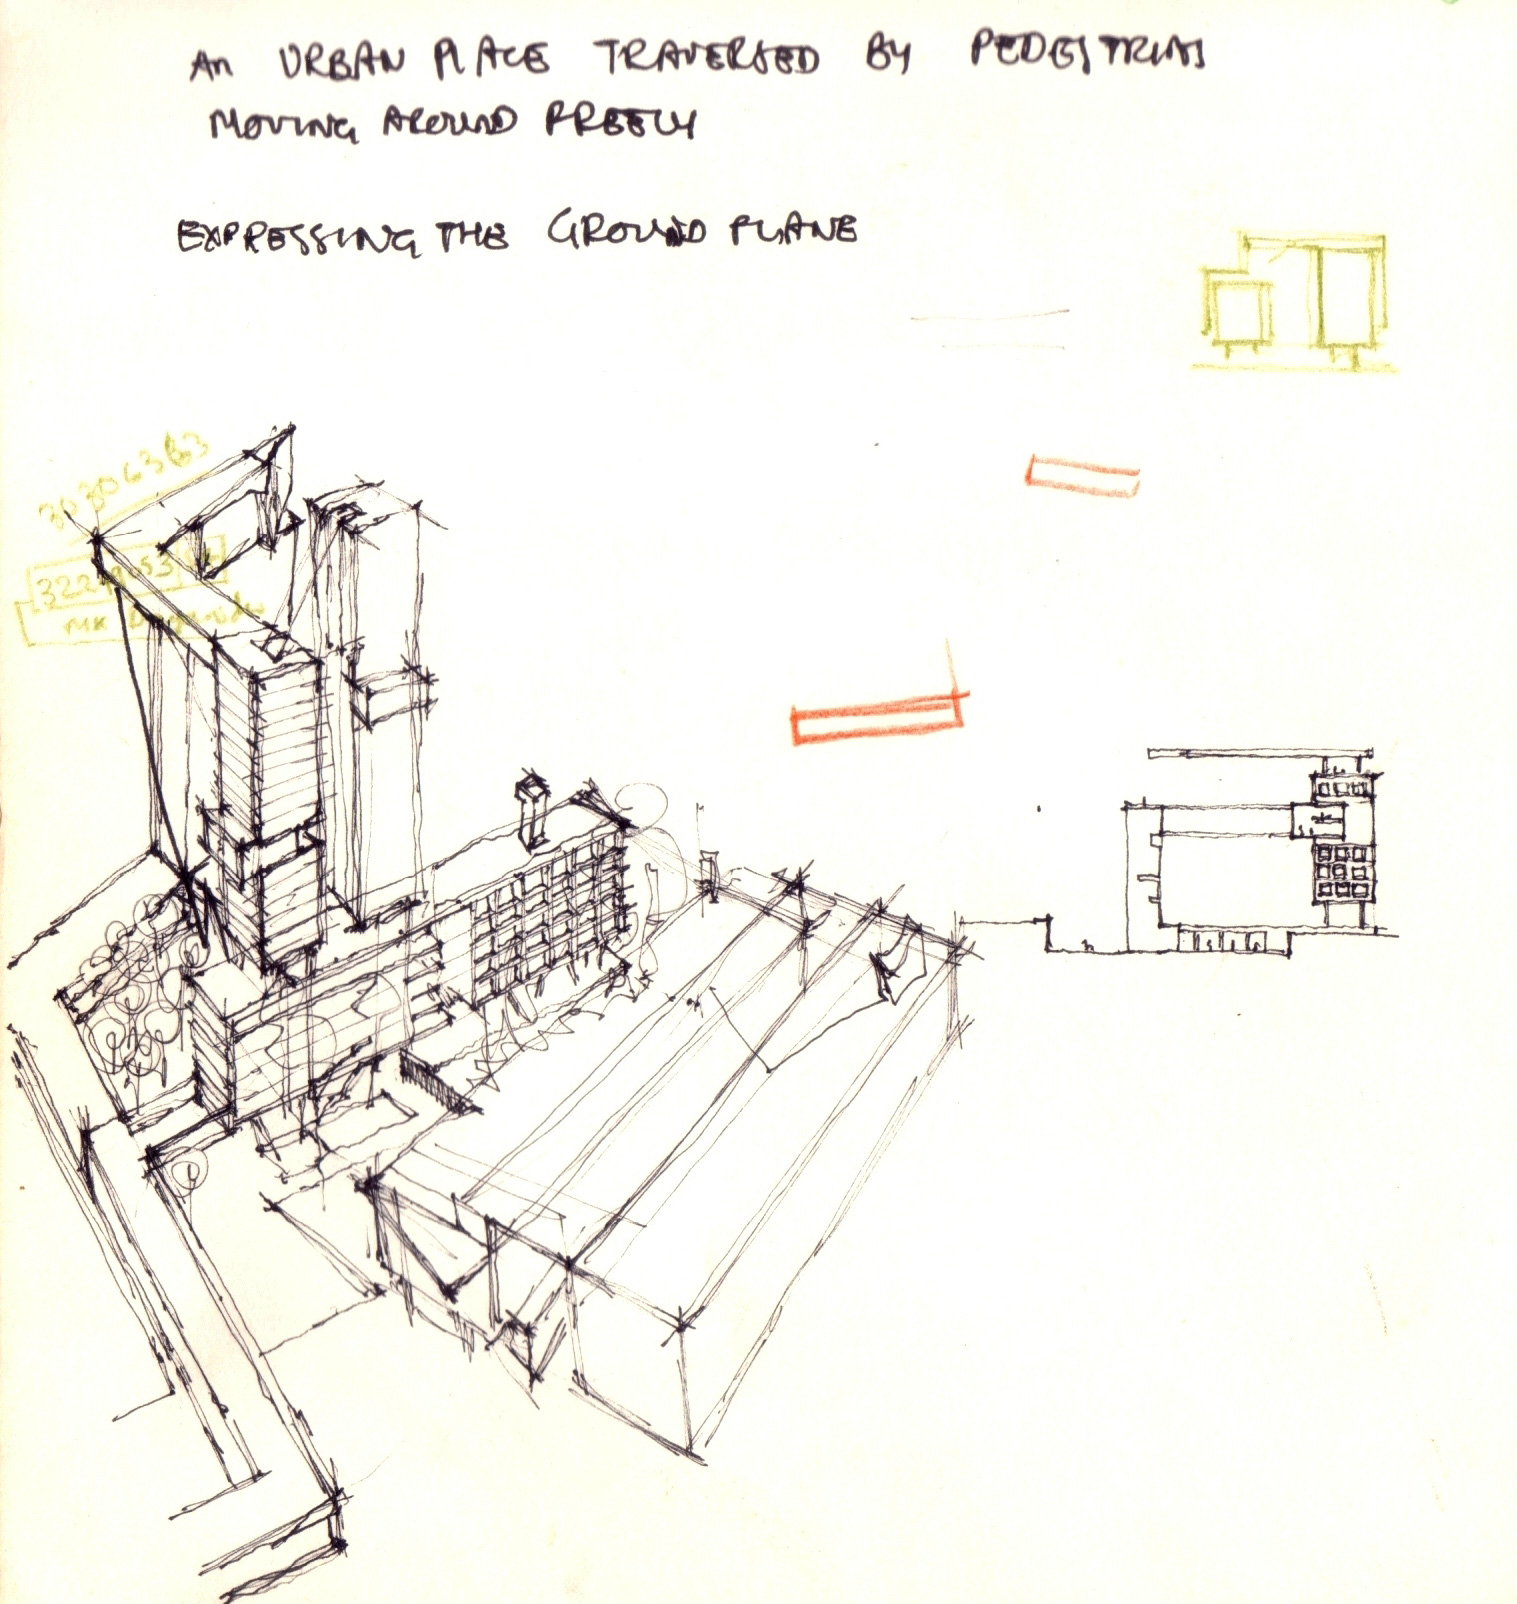 An URBAN PLACE TRAVERSED BY PEDESTRIANS
MOVING AROUND FREELY
EXPRESSING THE GROUND PLANE
30306363
MR